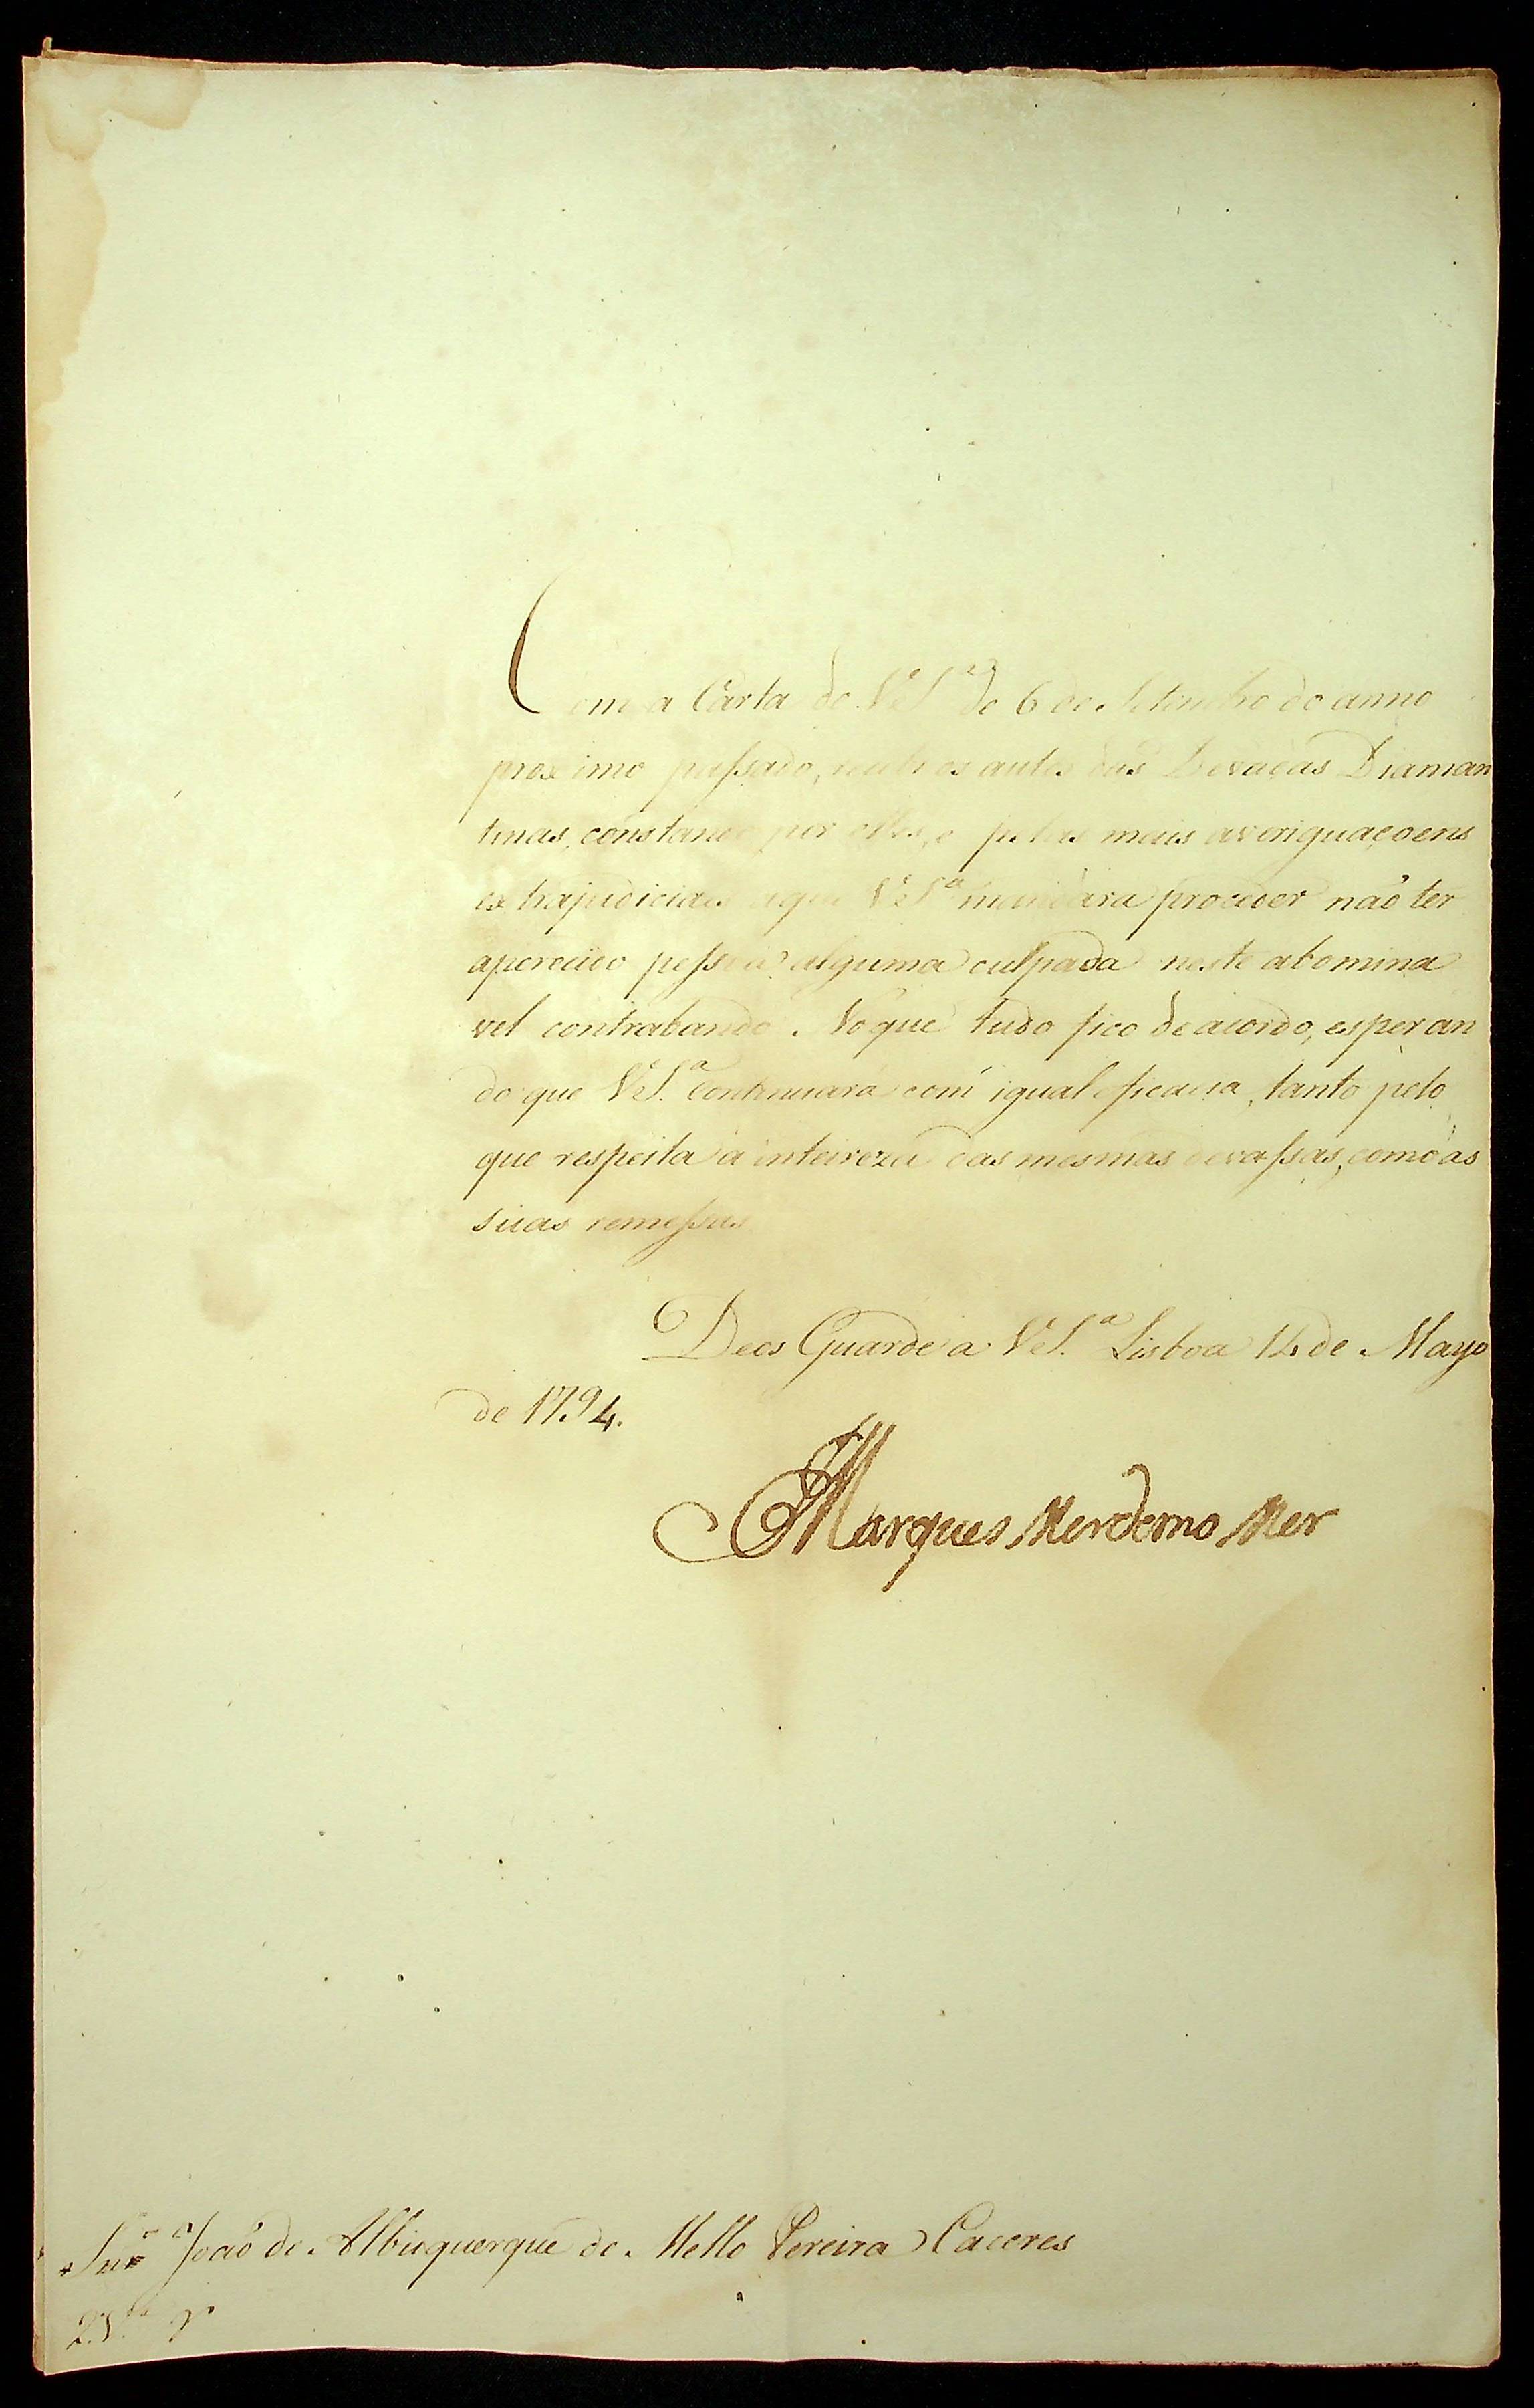 Com a Carta de V.S.ª de 6 de Setembro do anno
proximo passado, recebi os autos das Devaças Diaman
tinas, constando por elles, e pelas mais averiguaçoens
extrajudiciaes aque V.S.ª mandara proceder não ter
aparecido pessoa alguma culpada neste abomina
vel contrabando. No que tudo fico de acordo, esperan
do que V.S.ª continuará com igual eficacia, tanto pelo
que respeita a inteireza das mesmas devassas, como as
suas remessas
Deos Guarde a V.S.ª Lisboa 14 de Mayo
de 1794.
Marques Mordomo Mor
Snr. João de Albuquerque de Mello Pereira Caceres